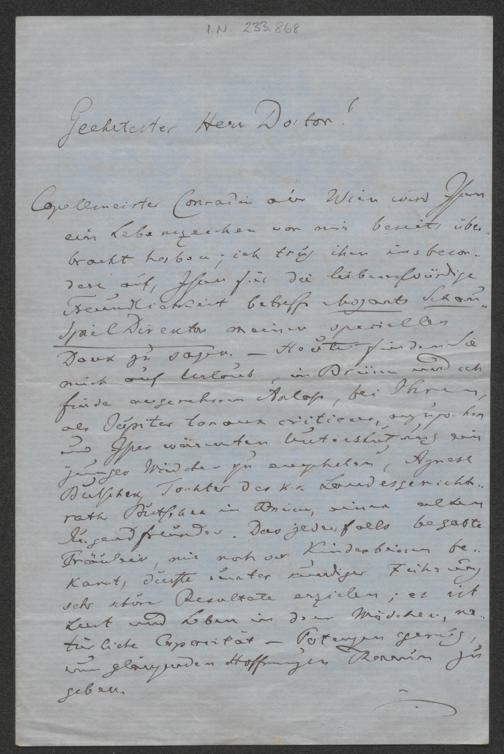 I.N. 233.868
Geehrtester Herr Doctor!
Capellmeister Conradin aus Wien wird Ihnen
ein Lebenszeichen von mir bereits über-
bracht haben; ich trug ihm insbeson-
dere auf, Ihnen für die liebenswürdige
Freundlichkeit betreffs Mozarts Schau-
spieldirektor meinen speziellen
Dank zu sagen. — Heute finden Sie
mich auf Urlaub, in Brünn und ich
finde angenehmen Anlass, bei Ihnen,
als Jupiter tonans criticus, anzupochen
und Ihrer wärmsten Unterstützung ein
junges Mädchen zu empfehlen, Agnese
Tochter des k.k. Landesgerichts-
rath in Brünn, eines alten
Jugendfreundes. Das jedenfalls begabte
Fräulein, mir noch von Kindesbeinen be-
kannt, dürfte unter kundiger Führung
sehr schöne Resultate erzielen; es ist
und Leben in dem Mädchen, na-
türliche Capacität — genug,
um glänzenden Hoffnungen Raum zu
geben.